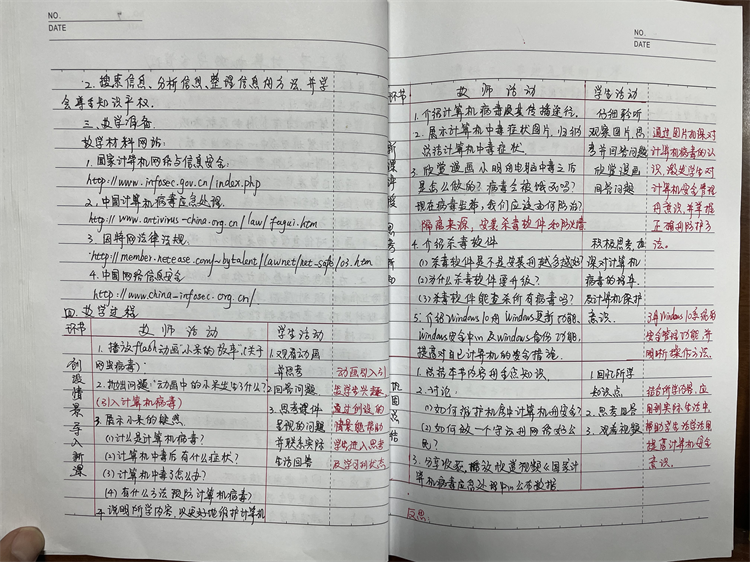 NO.
DATE
2. 搜索信息、分析信息、整理信息的方法,并学
会尊重知识产权.
三、教学准备.
教学材料网站:
1. 国家计算机网络与信息安全:
http://www.infosec.gov.cn/index.php
2. 中国计算机病毒应急处理:
http://www.antivirus-china.org.cn/law/fagui.htm
3. 因特网法律法规.
http://member.netease.com/~bytalent/lawnet/net-safe/03.htm
4. 中国网络信息安全
http://www.china-infosec.org.cn/.
四. 教学过程
环节 教师活动 学生活动
创设情景 导入新课
1. 播放flash动画"小米的故事"(关于
网虫病毒)
2. 抛出问题"动画中的小米发生了什么?
(引入计算机病毒)
3. 展示小米的疑惑.
(1) 什么是计算机病毒?
(2) 计算机中毒后有什么症状?
(3) 计算机中毒了怎么办?
(4) 有什么方法预防计算机病毒?
4. 说明所学内容,以更好地维护计算机
1. 观看动画
并思考
2. 回答问题.
3. 思考课件
呈现的问题
并联系实际
生活回答
动画引入引
起学生兴趣
通过创设的
情景能帮助
学生进入思考
及学习的状态
NO.
DATE
环节 教师活动 学生活动
1. 介绍计算机病毒及其传播途径.
2. 展示计算机中毒症状图片,归纳
总结计算机中毒症状.
3. 欣赏漫画小明的电脑中毒之后
是怎么做的?病毒会被饿死吗?
现在病毒猖獗,我们应该如何防治?
隔离来源,安装杀毒软件和防火墙
4. 介绍杀毒软件
(1) 杀毒软件是不是安装的越多越好?
(2) 为什么杀毒软件要升级?
(3) 杀毒软件能查杀所有病毒吗?
5. 介绍Windows10的Windows更新功能、
Windows安全中心及windows备份功能,
提高对自己计算机的安全措施.
仔细聆听
观察图片,思
考并回答问题
欣赏漫画
回答问题
积极思考,加
深对计算机
病毒的培养
及计算机保护
意识.
通过图片加深对
计算机病毒的认
识,激发学生对
计算机安全重视
的意识,并掌握
正确的防护方
法.
了解Windows10系统的
安全管理功能,并
明晰操作方法.
巩固总结
1. 总结本节内容的重点知识.
2. 讨论:
(1) 如何维护机房中计算机的安全?
(2) 如何做一个守法的网络好公
民?
3. 分享收获,播放放送视频《国家计
算机病毒应急处理中心公布数据
1. 回忆所学
知识点
2. 思考回答
3. 观看视频
结合所学内容,应
用到实际生活中.
帮助学生学活学用
提高计算机安全
意识.
反思: